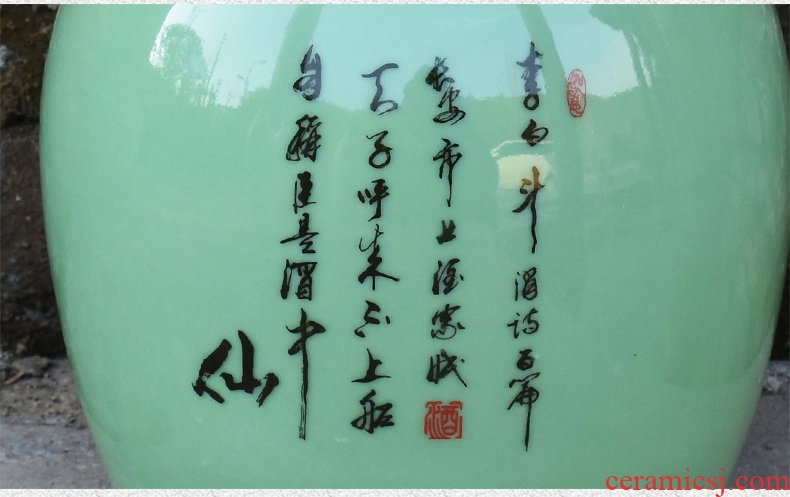 李白斗酒诗百篇
长安市上酒家眠
酒
天子呼来不上船
自稱臣是酒中
仙
ceramicsj.com